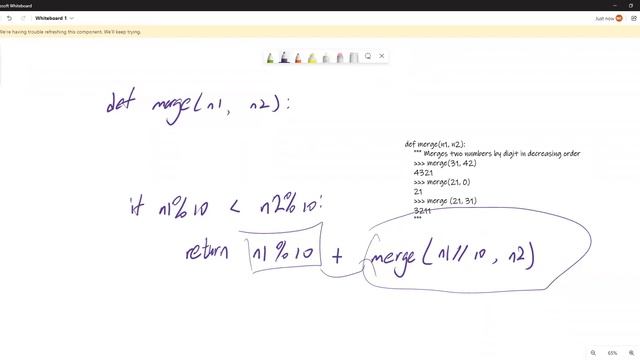 Microsoft Whiteboard
Whiteboard 1
Just now
We're having trouble refreshing this component. We'll keep trying.
def merge(n1, n2):
def merge(n1, n2):
""" Merges two numbers by digit in decreasing order
>>> merge(31, 42)
4321
>>> merge(21, 0)
21
>>> merge (21, 31)
3211
"""
if n1%10 < n2%10:
return n1%10 + merge(n1//10, n2)
65%